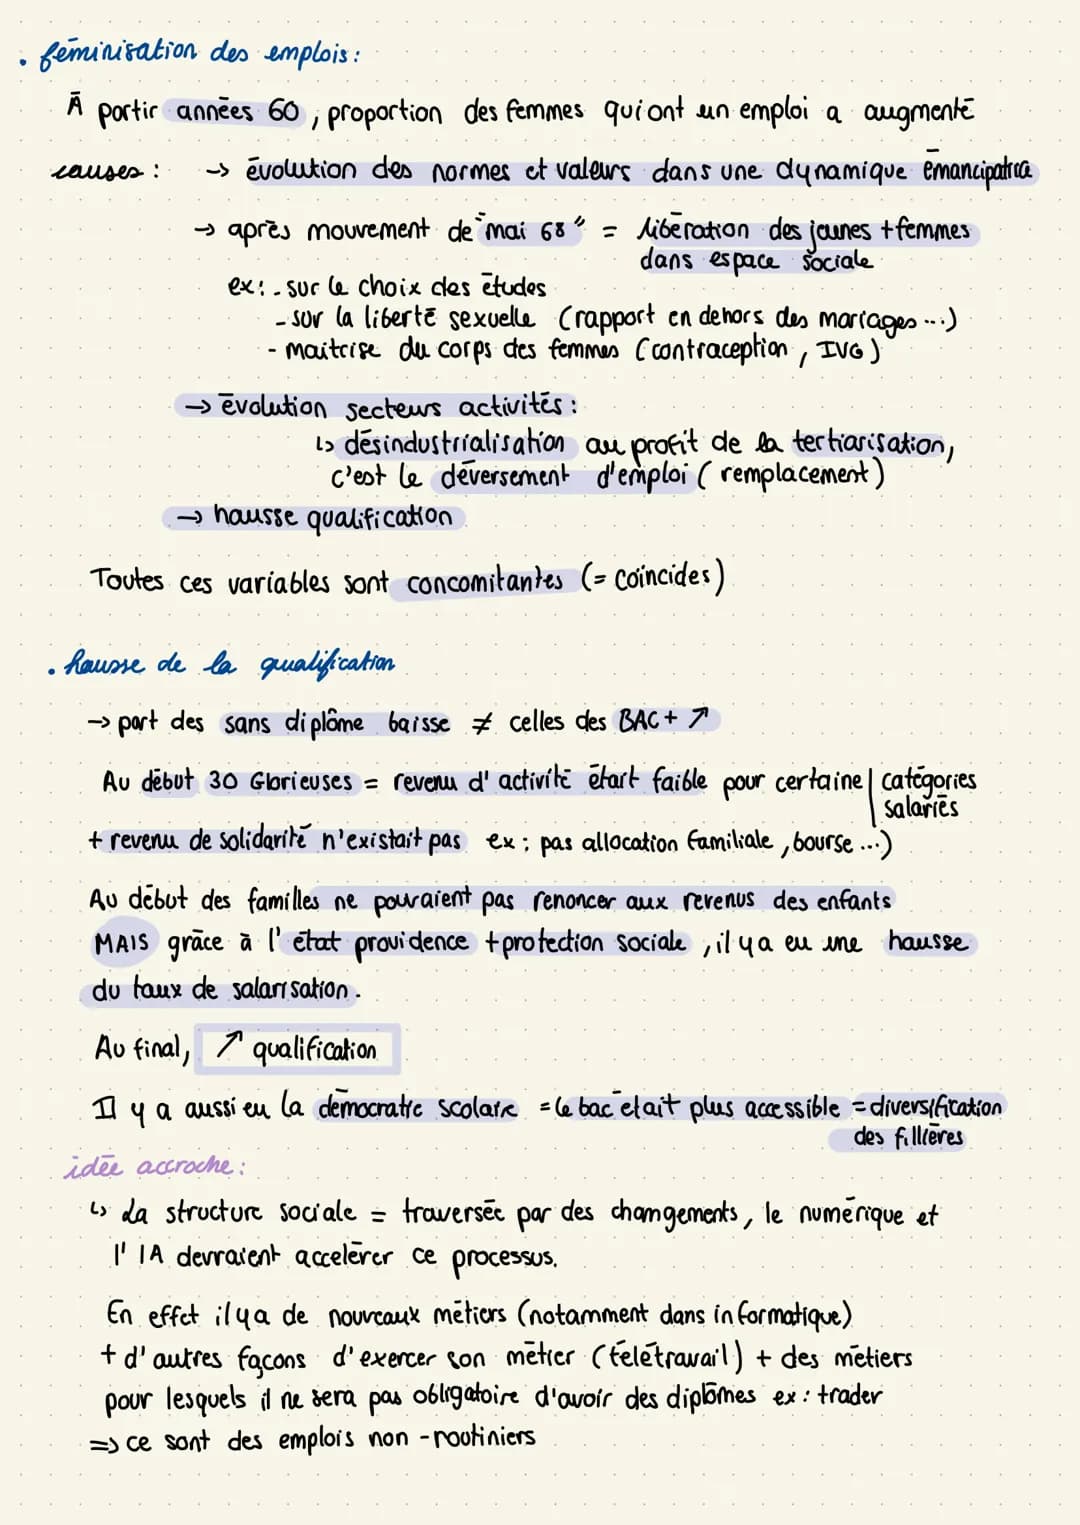 . féminisation des emplois :
À partir années 60, proportion des femmes qui ont un emploi a augmenté
causes : → évolution des normes et valeurs dans une dynamique émancipatrice
→ après mouvement de "mai 68" = libération des jeunes + femmes
dans espace sociale
ex : - sur le choix des études
- sur la liberté sexuelle (rapport en dehors des mariages ...)
- maitrise du corps des femmes (contraception, IVG)
→ évolution secteurs activités :
↳ désindustrialisation au profit de la tertiarisation,
c'est le déversement d'emploi (remplacement)
→ hausse qualification
Toutes ces variables sont concomitantes (= coïncides)
. hausse de la qualification
→ part des sans diplôme baisse ≠ celles des BAC+ ↗
Au début 30 Glorieuses = revenu d'activité était faible pour certaine | catégories
salariés
+ revenu de solidarité n'existait pas ex : pas allocation familiale, bourse ...)
Au début des familles ne pouvaient pas renoncer aux revenus des enfants
MAIS grâce à l'état providence + protection sociale, il y a eu une hausse
du taux de salarisation.
Au final, ↗ qualification
Il y a aussi eu la démocratie scolaire = le bac était plus accessible = diversification
des fillières
idée accroche :
↳ La structure sociale = traversée par des changements, le numérique et
l'IA devraient accelérer ce processus.
En effet il y a de nouveaux métiers (notamment dans informatique)
+ d'autres façons d'exercer son métier (télétravail) + des métiers
pour lesquels il ne sera pas obligatoire d'avoir des diplômes ex : trader
=> ce sont des emplois non-routiniers